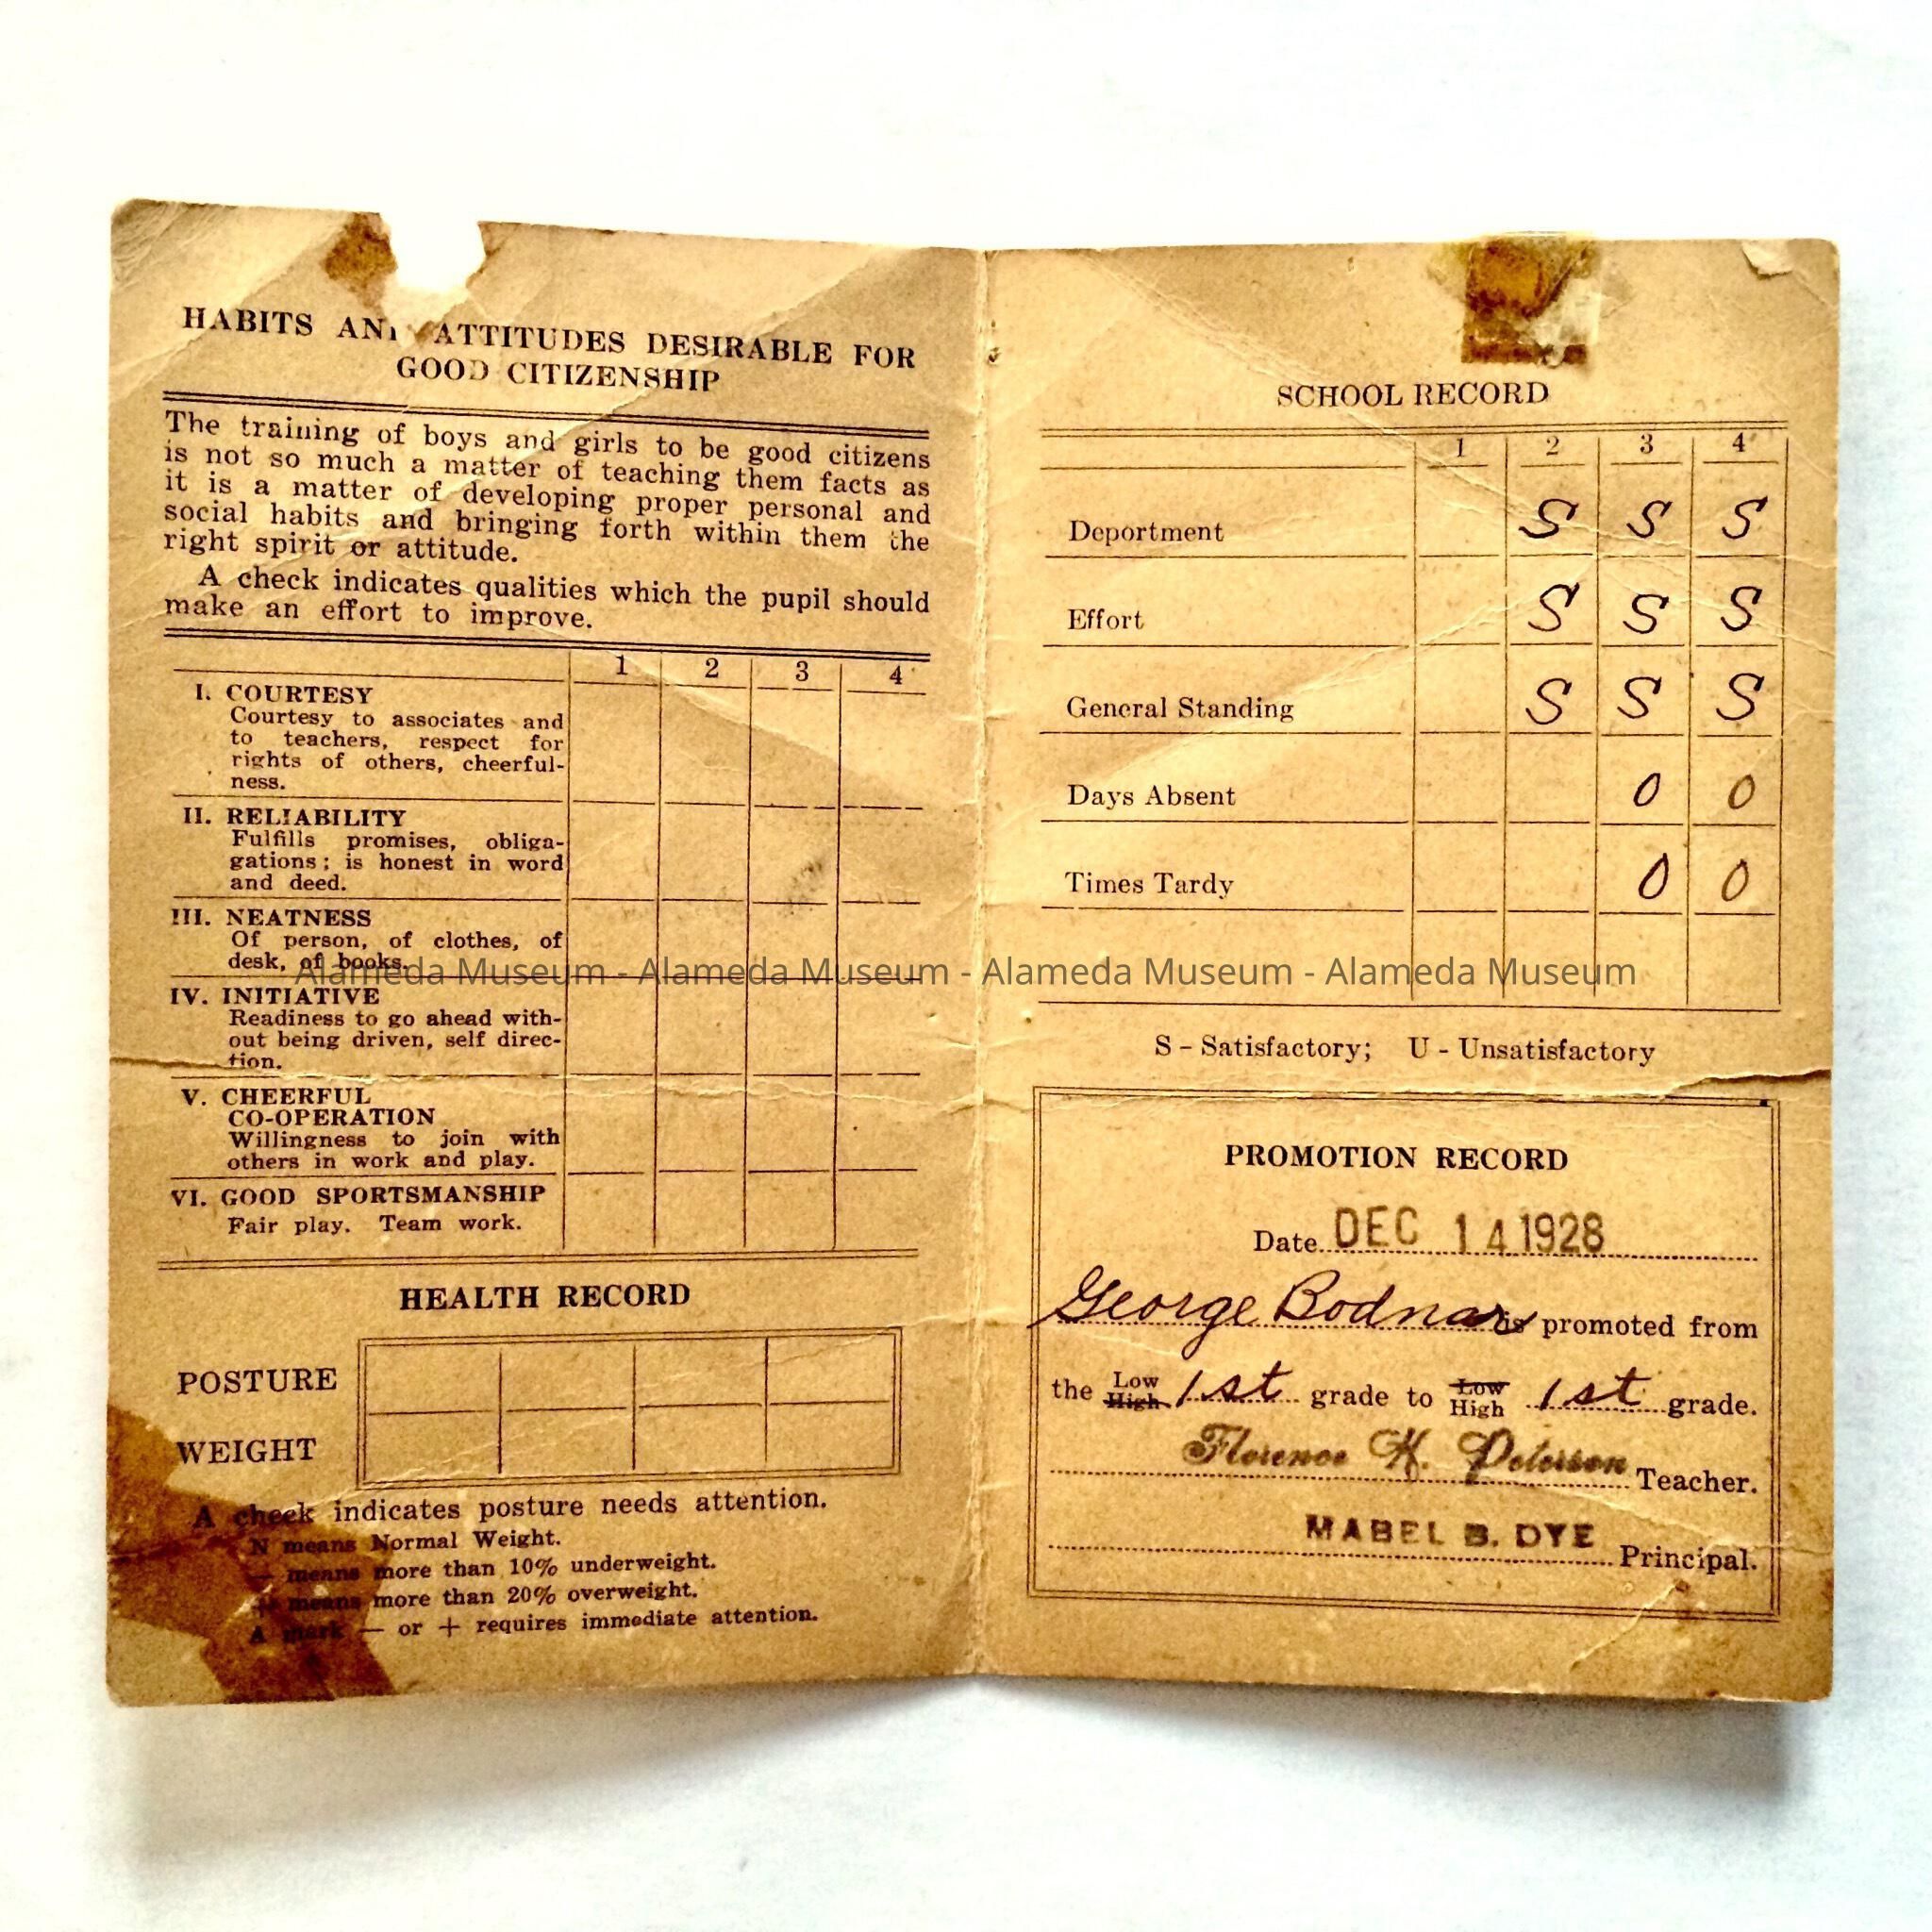 HABITS AND ATTITUDES DESIRABLE FOR
GOOD CITIZENSHIP
The training of boys and girls to be good citizens
is not so much a matter of teaching them facts as
it is a matter of developing proper personal and
social habits and bringing forth within them the
right spirit or attitude.
A check indicates qualities which the pupil should
make an effort to improve.
1 2 3 4
I. COURTESY
Courtesy to associates and
to teachers, respect for
rights of others, cheerful-
ness.
II. RELIABILITY
Fulfills promises, obliga-
gations; is honest in word
and deed.
III. NEATNESS
Of person, of clothes, of
desk, of books.
IV. INITIATIVE
Readiness to go ahead with-
out being driven, self direc-
tion.
V. CHEERFUL
CO-OPERATION
Willingness to join with
others in work and play.
VI. GOOD SPORTSMANSHIP
Fair play. Team work.
HEALTH RECORD
POSTURE
WEIGHT
A check indicates posture needs attention.
N means Normal Weight.
— means more than 10% underweight.
+ means more than 20% overweight.
A mark — or + requires immediate attention.
SCHOOL RECORD
1 2 3 4
Deportment S S S
Effort S S S
General Standing S S S
Days Absent 0 0
Times Tardy 0 0
S - Satisfactory; U - Unsatisfactory
PROMOTION RECORD
Date DEC 14 1928
George Bodnar is promoted from
the Low High 1st grade to Low High 1st grade.
Florence K. Peterson Teacher.
MABEL B. DYE Principal.
Alameda Museum - Alameda Museum - Alameda Museum - Alameda Museum